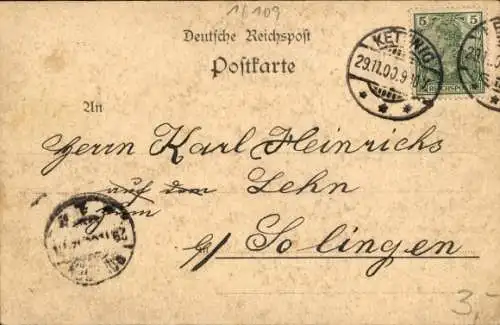 18109
Deutsche Reichspost
Postkarte
5 5
KETTWIG
29.11.00.9-10V.
An
Herrn Karl Heinrichs
auf dem Lehn
zum
b/ Solingen
3,-